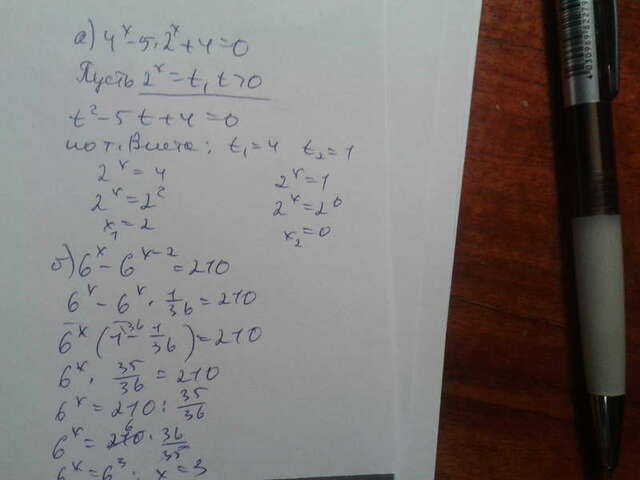 а) 4ˣ - 5·2ˣ + 4 = 0
Пусть 2ˣ = t, t > 0
t² - 5t + 4 = 0
по т. Виета: t₁ = 4 t₂ = 1
2ˣ = 4 2ˣ = 1
2ˣ = 2² 2ˣ = 2⁰
x₁ = 2 x₂ = 0
б) 6ˣ - 6ˣ⁻² = 210
6ˣ - 6ˣ · 1/36 = 210
6ˣ (1 - 1/36) = 210
6ˣ · 35/36 = 210
6ˣ = 210 : 35/36
6ˣ = 210 · 36/35
6ˣ = 6³; x = 3